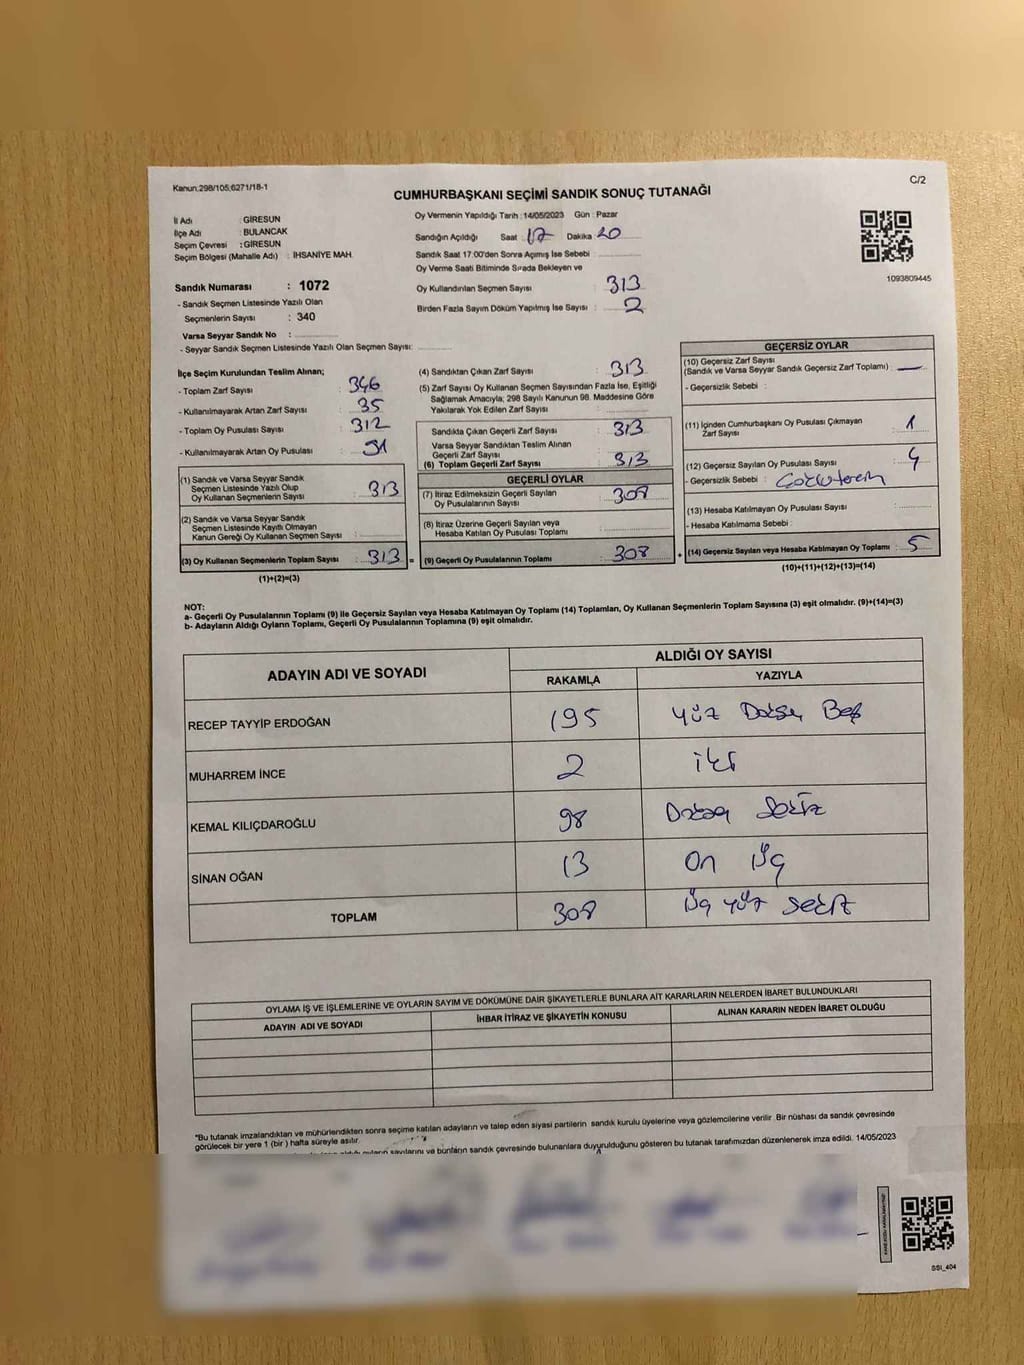 Kanun,298/105,6271/18-1
C/2
CUMHURBAŞKANI SEÇİMİ SANDIK SONUÇ TUTANAĞI
İl Adı : GİRESUN
İlçe Adı : BULANCAK
Seçim Çevresi : GİRESUN
Seçim Bölgesi (Mahalle Adı) : İHSANİYE MAH.
Oy Vermenin Yapıldığı Tarih :14/05/2023 Gün : Pazar
Sandığın Açıldığı Saat : 17 Dakika 20
Sandık Saat 17:00'den Sonra Açımış Ise Sebebi :
Oy Verme Saati Bitiminde Sırada Bekleyen ve
Oy Kullandırılan Seçmen Sayısı : 313
Birden Fazla Sayım Döküm Yapılmış Ise Sayısı : 2
1093809445
Sandık Numarası : 1072
- Sandık Seçmen Listesinde Yazılı Olan
Seçmenlerin Sayısı : 340
Varsa Seyyar Sandık No :
- Seyyar Sandık Seçmen Listesinde Yazılı Olan Seçmen Sayısı:
İlçe Seçim Kurulundan Teslim Alınan;
- Toplam Zarf Sayısı : 346
- Kullanılmayarak Artan Zarf Sayısı : 35
- Toplam Oy Pusulası Sayısı : 312
- Kullanılmayarak Artan Oy Pusulası :
(1) Sandık ve Varsa Seyyar Sandık
Seçmen Listesinde Yazılı Olup
Oy Kullanan Seçmenlerin Sayısı : 313
(2) Sandık ve Varsa Seyyar Sandık
Seçmen Listesinde Kayıtlı Olmayan
Kanun Gereği Oy Kullanan Seçmen Sayısı :
(3) Oy Kullanan Seçmenlerin Toplam Sayısı : 313 =
(1)+(2)=(3)
(4) Sandıktan Çıkan Zarf Sayısı : 313
(5) Zarf Sayısı Oy Kullanan Seçmen Sayısından Fazla İse, Eşitliği
Sağlamak Amacıyla; 298 Sayılı Kanunun 98. Maddesine Göre
Yakılarak Yok Edilen Zarf Sayısı :
Sandıkta Çıkan Geçerli Zarf Sayısı : 313
Varsa Seyyar Sandıktan Teslim Alınan
Geçerli Zarf Sayısı :
(6) Toplam Geçerli Zarf Sayısı : 313
GEÇERLİ OYLAR
(7) İtiraz Edilmeksizin Geçerli Sayılan
Oy Pusulalarının Sayısı : 308
(8) İtiraz Üzerine Geçerli Sayılan veya
Hesaba Katılan Oy Pusulası Toplamı :
(9) Geçerli Oy Pusulalarının Toplamı : 308 +
GEÇERSİZ OYLAR
(10) Geçersiz Zarf Sayısı
(Sandık ve Varsa Seyyar Sandık Geçersiz Zarf Toplamı) : —
- Geçersizlik Sebebi :
(11) İçinden Cumhurbaşkanı Oy Pusulası Çıkmayan
Zarf Sayısı : 1
(12) Geçersiz Sayılan Oy Pusulası Sayısı : 4
- Geçersizlik Sebebi :
(13) Hesaba Katılmayan Oy Pusulası Sayısı :
- Hesaba Katılmama Sebebi :
(14) Geçersiz Sayılan veya Hesaba Katılmayan Oy Toplamı : 5
(10)+(11)+(12)+(13)=(14)
NOT:
a- Geçerli Oy Pusulalarının Toplamı (9) ile Geçersiz Sayılan veya Hesaba Katılmayan Oy Toplamı (14) Toplamları, Oy Kullanan Seçmenlerin Toplam Sayısına (3) eşit olmalıdır. (9)+(14)=(3)
b- Adayların Aldığı Oyların Toplamı, Geçerli Oy Pusulalarının Toplamına (9) eşit olmalıdır.
ADAYIN ADI VE SOYADI
ALDIĞI OY SAYISI
RAKAMLA YAZIYLA
RECEP TAYYİP ERDOĞAN 195 Yüz Doksan Beş
MUHARREM İNCE 2 iki
KEMAL KILIÇDAROĞLU 98 Doksan Sekiz
SİNAN OĞAN 13 On üç
TOPLAM 308 üç yüz sekiz
OYLAMA İŞ VE İŞLEMLERİNE VE OYLARIN SAYIM VE DÖKÜMÜNE DAİR ŞİKAYETLERLE BUNLARA AİT KARARLARIN NELERDEN İBARET BULUNDUKLARI
ADAYIN ADI VE SOYADI İHBAR İTİRAZ VE ŞİKAYETİN KONUSU ALINAN KARARIN NEDEN İBARET OLDUĞU
*Bu tutanak imzalandıktan ve mühürlendikten sonra seçime katılan adayların ve talep eden siyasi partilerin sandık kurulu üyelerine veya gözlemcilerine verilir. Bir nüshası da sandık çevresinde
görülecek bir yere 1 (bir) hafta süreyle asılır.
sayılarını ve bunların sandık çevresinde bulunanlara duyurulduğunu gösteren bu tutanak tarafımızdan düzenlenerek imza edildi. 14/05/2023
SSI_404